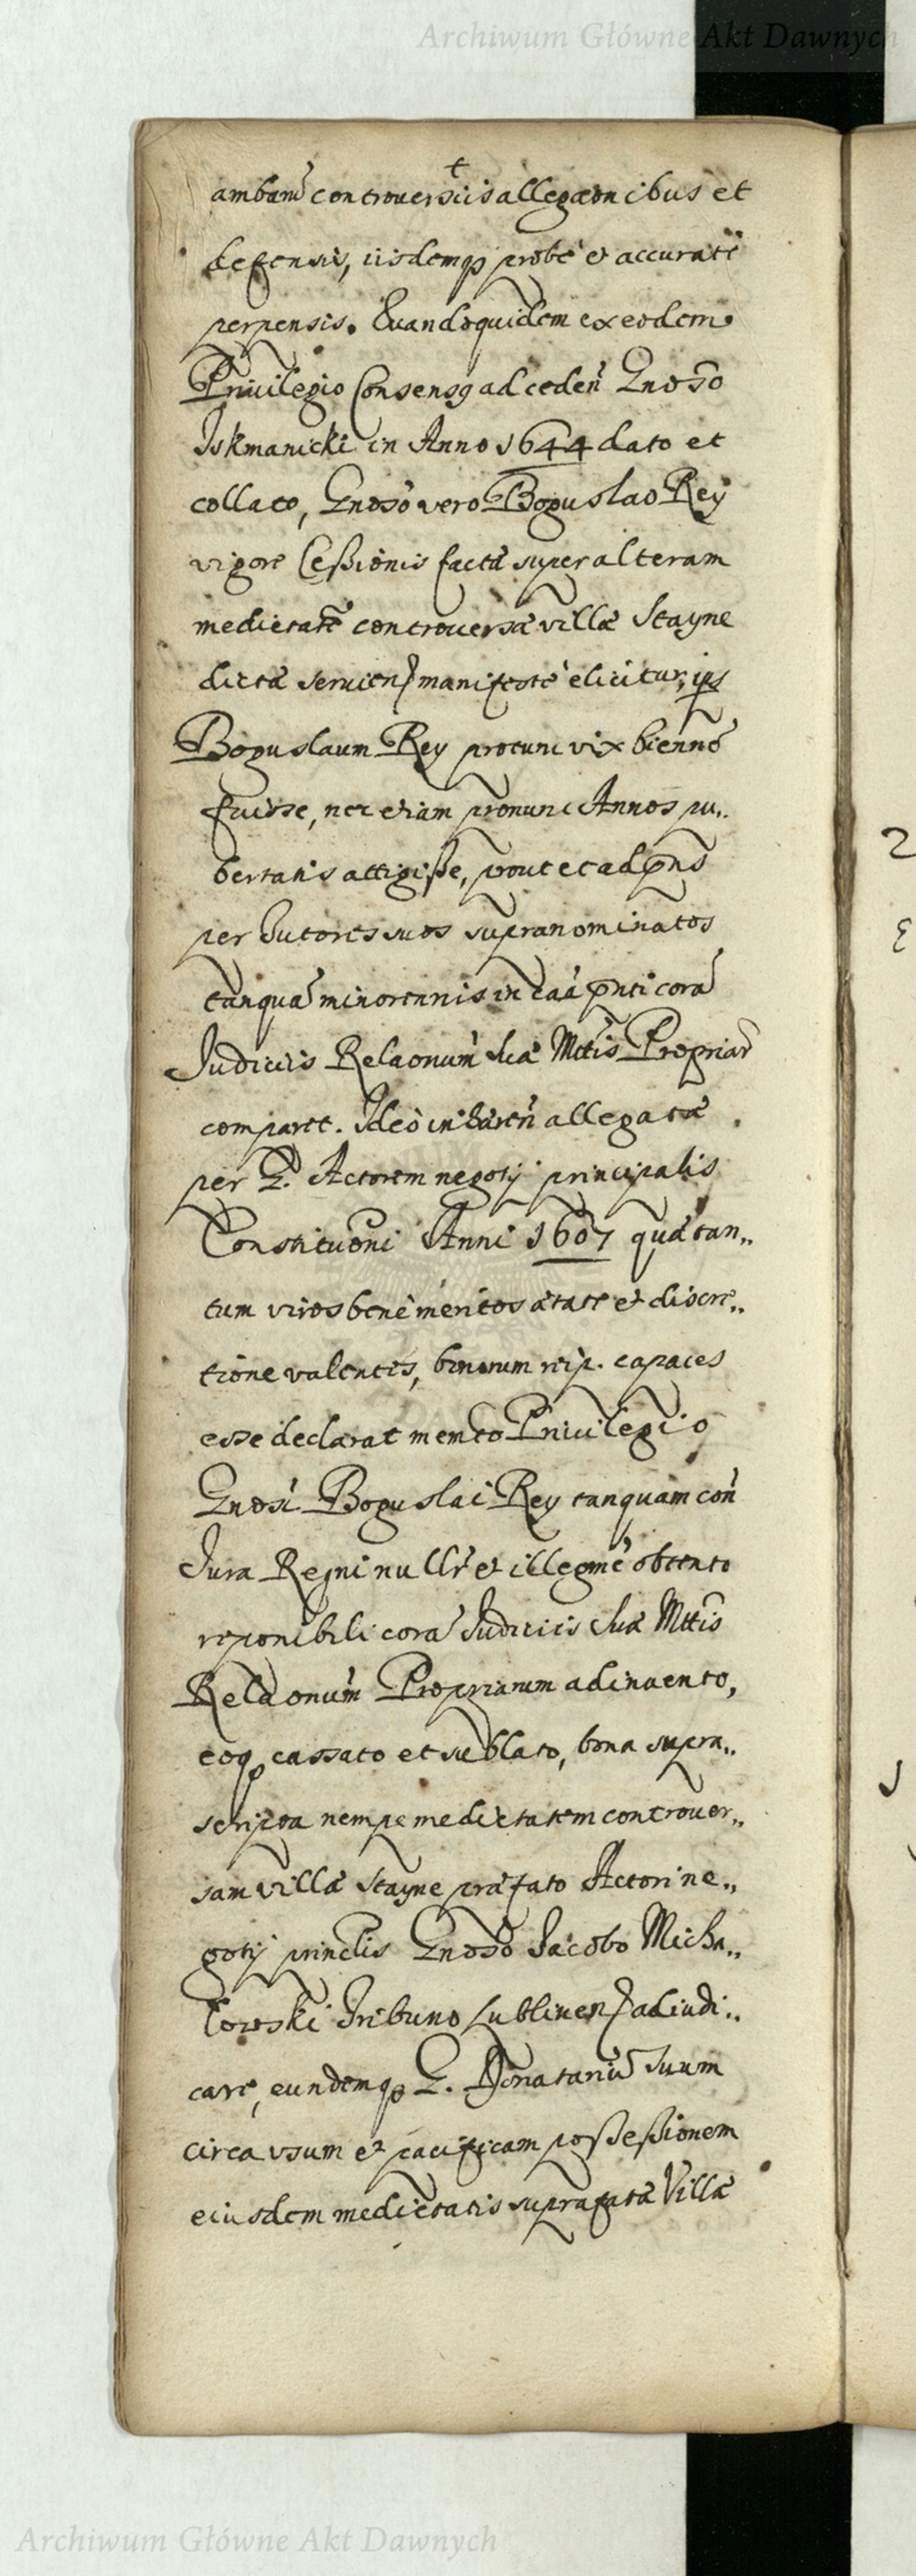 Archiwum Główne Akt Dawnych
ambarũ controuersiis allegaonibus et
defensis, iisdemq₃ probè et accuratè
perpensis. Quandoquidem ex eodem
Priuilegio Consensꝯ ad ceden̄ Gnoso
Iskmanicki in Anno 1644 dato et
collato, Gnoso vero Boguslao Rey
vigore Cessionis factæ super alteram
medietatē controuersæ villæ Stayne
dictæ seruien manifestè elicitur,
Boguslaum Rey protunc vix biennē
fuisse, nec etiam pronunc Annos pu„
bertatis attigisse, prout et ad pn̄s
per Tutores suos supranominatos
tanquā minorennis in caā pn̄ti corā
Iudiciis Relaonum Suæ Mttis Propriar̄
comparet. Ideò inhæren̄ allegatæ
per G. Actorem negotij principalis
Constitutõni Anni 1607 quæ tan„
tum viros benè meritos ætate et discre„
tione valentes, bonorum reip. capaces
esse declarat memto Priuilegio
Gnosi Boguslai Rey tanquam con̄
Iura Regni nullr̄ et illegmè obtento
reponibili corā Iudiciis Suæ Mttis
Relaonum Propriarum adinuento,
eoq₃ cassato et sublato, bona supra„
scripta nempe medietatem controuer„
sam villæ Stayne præfato Actori ne„
gotij princlis Gnoso Iacobo Micha„
lowski Tribuno Lublinen adiudi„
care, eundemq₃ G. Donatariũ Suum
circa vsum et pacificam possessionem
eiusdem medietatis suprafatæ Villæ
Archiwum Główne Akt Dawnych